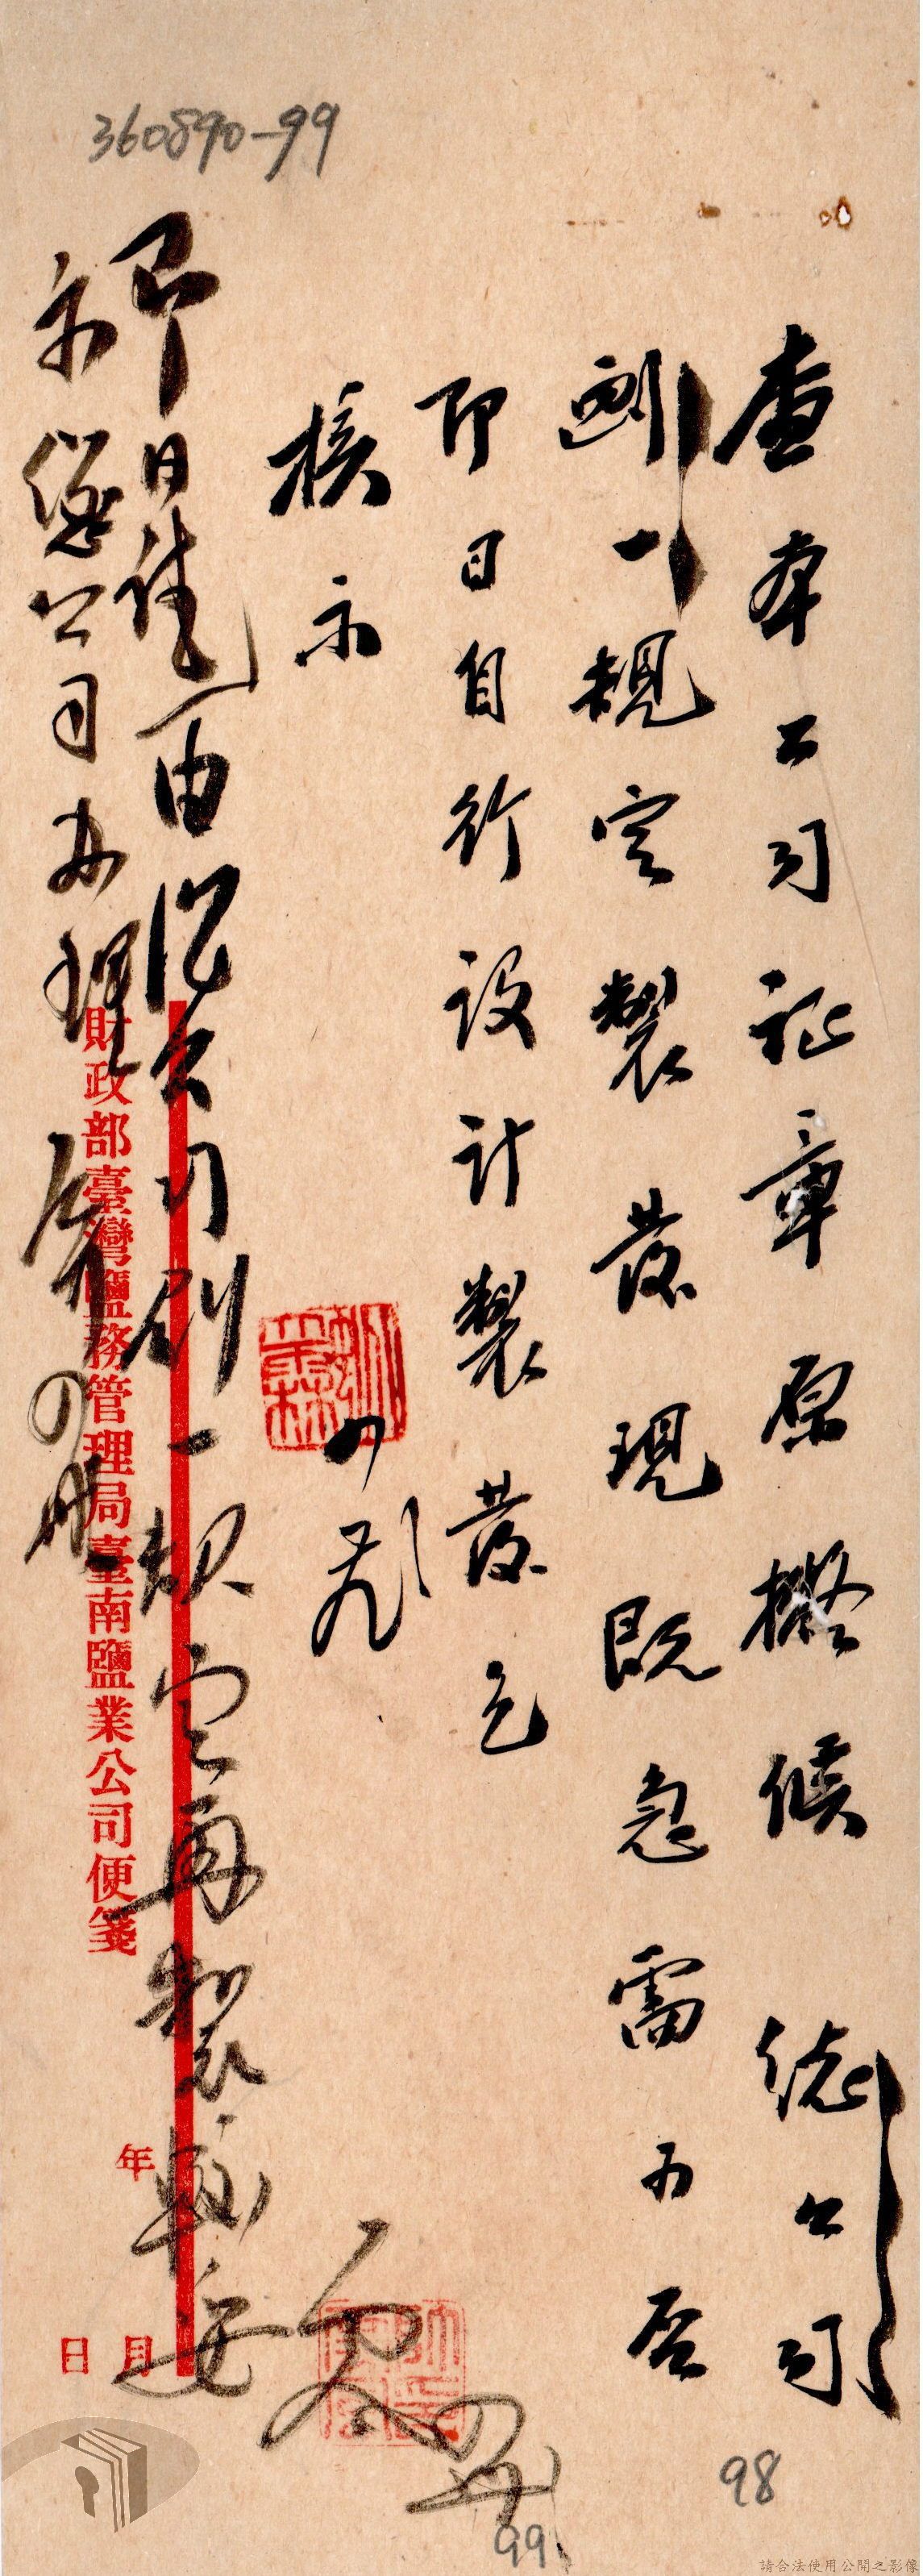 360890-99
查本公司証章原擬候總公司
劃一規定製發現既急需可否
即日自行設計製發乞
核示
即日請由總公司劃一規定再製較妥
示總公司办理
財政部臺灣鹽務管理局臺南鹽業公司便箋
年
月
日
98
99
請合法使用公開之影像